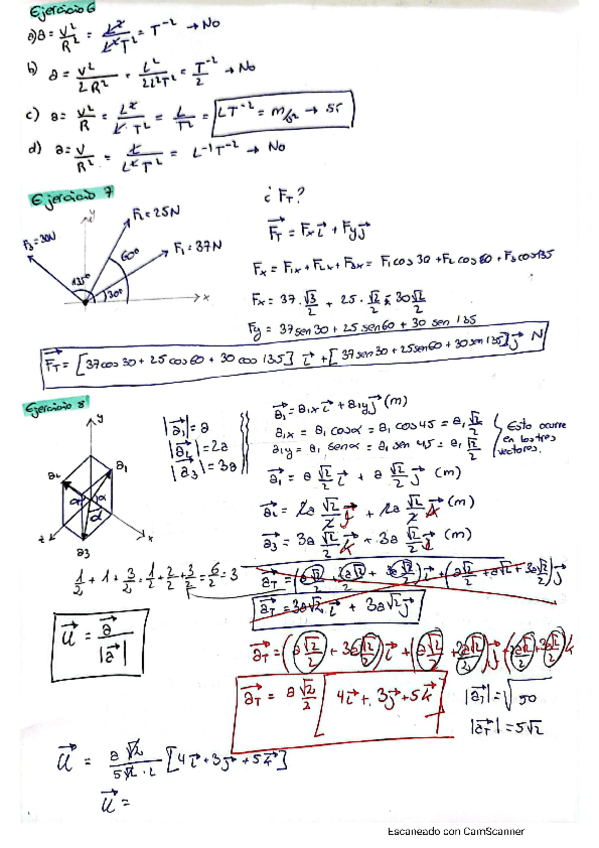 Ejercicio 6
a) a = v²/R² = L²/L²T² = T⁻² → No
b) a = v²/2R² = L²/2L²T² = T⁻²/2 → No
c) a = v²/R = L²/L·T² = L/T² = LT⁻² = m/s² → SI
d) a = v/R² = L/L²T² = L⁻¹T⁻² → No
Ejercicio 7
¿F_T?
y
F₂ = 25N
F₃ = 30N
F₁ = 37N
60º
135º
30º
x
F_T = Fx i + Fy j
Fx = F₁x + F₂x + F₃x = F₁ cos 30 + F₂ cos 60 + F₃ cos 135
Fx = 37·√3/2 + 25·√2/2 30√2/2
Fy = 37 sen 30 + 25 sen 60 + 30 sen 135
F_T = [37 cos 30 + 25 cos 60 + 30 cos 135] i + [37 sen 30 + 25 sen 60 + 30 sen 135] j N
Ejercicio 8
y
a₂
a₁
α
α
α
z
x
a₃
|a₁| = a
|a₂| = 2a
|a₃| = 3a
a₁ = a₁x i + a₁y j (m)
a₁x = a₁ cos α = a₁ cos 45 = a₁ √2/2
a₁y = a₁ sen α = a₁ sen 45 = a₁ √2/2
Esto ocurre
en los tres
vectores.
a₁ = a √2/2 i + a √2/2 j (m)
a₂ = 2a √2/2 j + 2a √2/2 k (m)
a₃ = 3a √2/2 k + 3a √2/2 i (m)
1/2 + 1 + 3/2 + 1/2 + 2/2 + 3/2 = 6/2 = 3
a_T = (a√2/2 + 2a√2/2 + 3a√2/2) i + (a√2/2 + a√2 + 3a√2/2) j
a_T = 3a√2 i + 3a√2 j
u = a/|a|
a_T = (a√2/2 + 3a√2/2) i + (a√2/2 + 2a√2/2) j + (2a√2/2 + 3a√2/2) k
a_T = a √2/2 [4i + 3j + 5k]
|a_T| = √50
|a_T| = 5√2
u = a√2/5√2·2 [4i + 3j + 5k]
u =
Escaneado con CamScanner